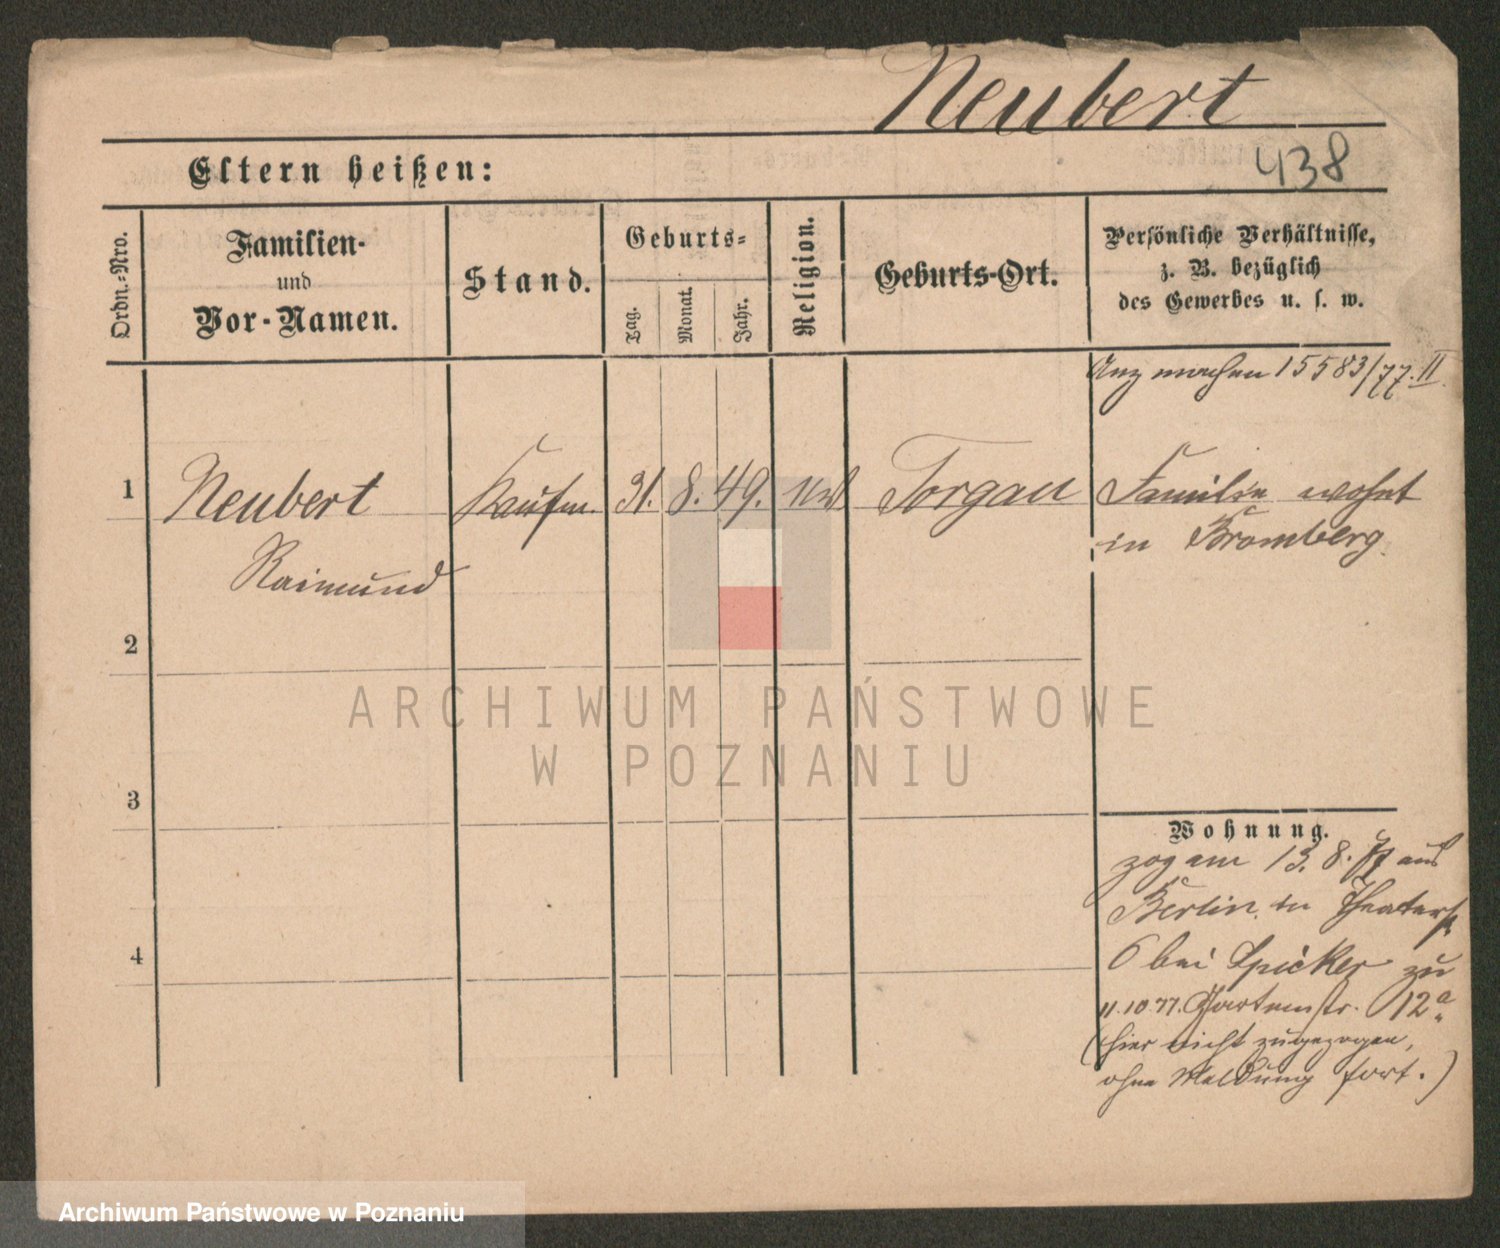 Neubert
438
Eltern heißen:
Ordn.-Nro.
Familien-
und
Vor-Namen.
Stand.
Geburts-
Tag.
Monat.
Jahr.
Religion.
Geburts-Ort.
Persönliche Verhältnisse,
z. B. bezüglich
des Gewerbes u. s. w.
15583/77. II
1 Neubert Kaufm. 31. 8. 49. Torgau Familie wohnt
in Bromberg.
Raimund
2
3
4
Wohnung.
zog am 13. 8. 77 aus
Berlin in Theaterst
6 bei Spicker zu
11.10.77. Gartenstr. 12a
(hier nicht zugezogen,
ohne Meldung fort.)
ARCHIWUM PAŃSTWOWE
W POZNANIU
Archiwum Państwowe w Poznaniu